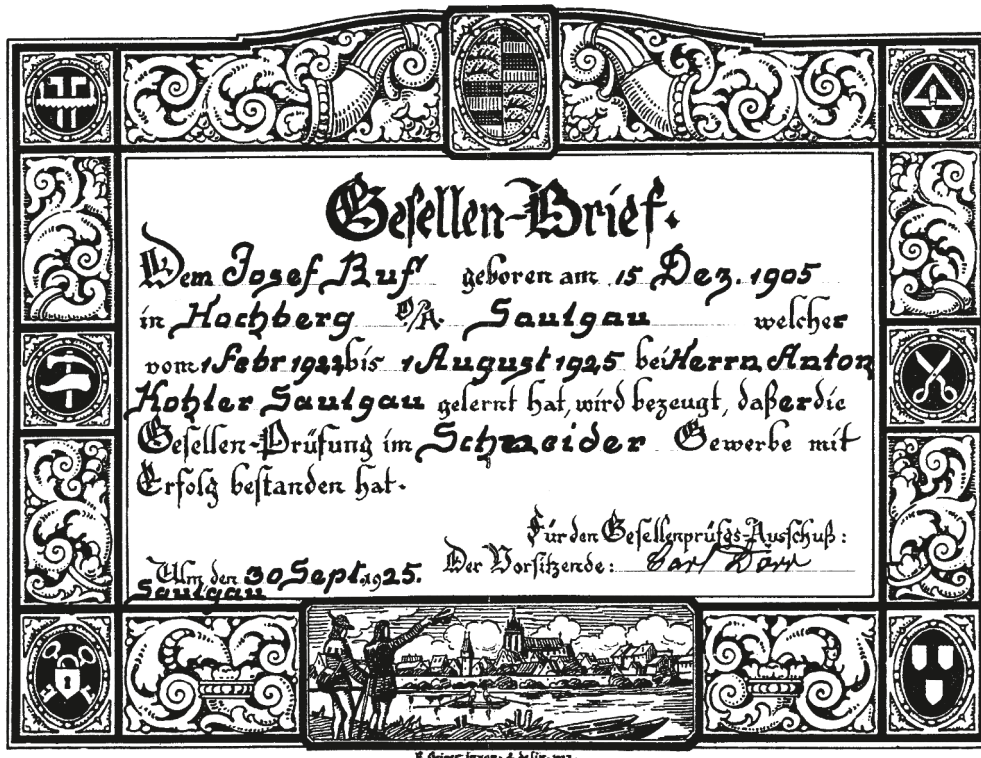 Gesellen-Brief.
Dem Josef Ruf geboren am 15 Dez. 1905
in Hochberg O/A. Saulgau welcher
vom 1 Febr 1922 bis 1 August 1925 bei Herrn Anton
Kohler Saulgau gelernt hat, wird bezeugt, daß er die
Gesellen-Prüfung im Schneider Gewerbe mit
Erfolg bestanden hat.
Für den Gesellenprüfgs-Ausschuß:
Ulm den 30 Sept. 1925. Der Vorsitzende: Carl Dörr
Saulgau